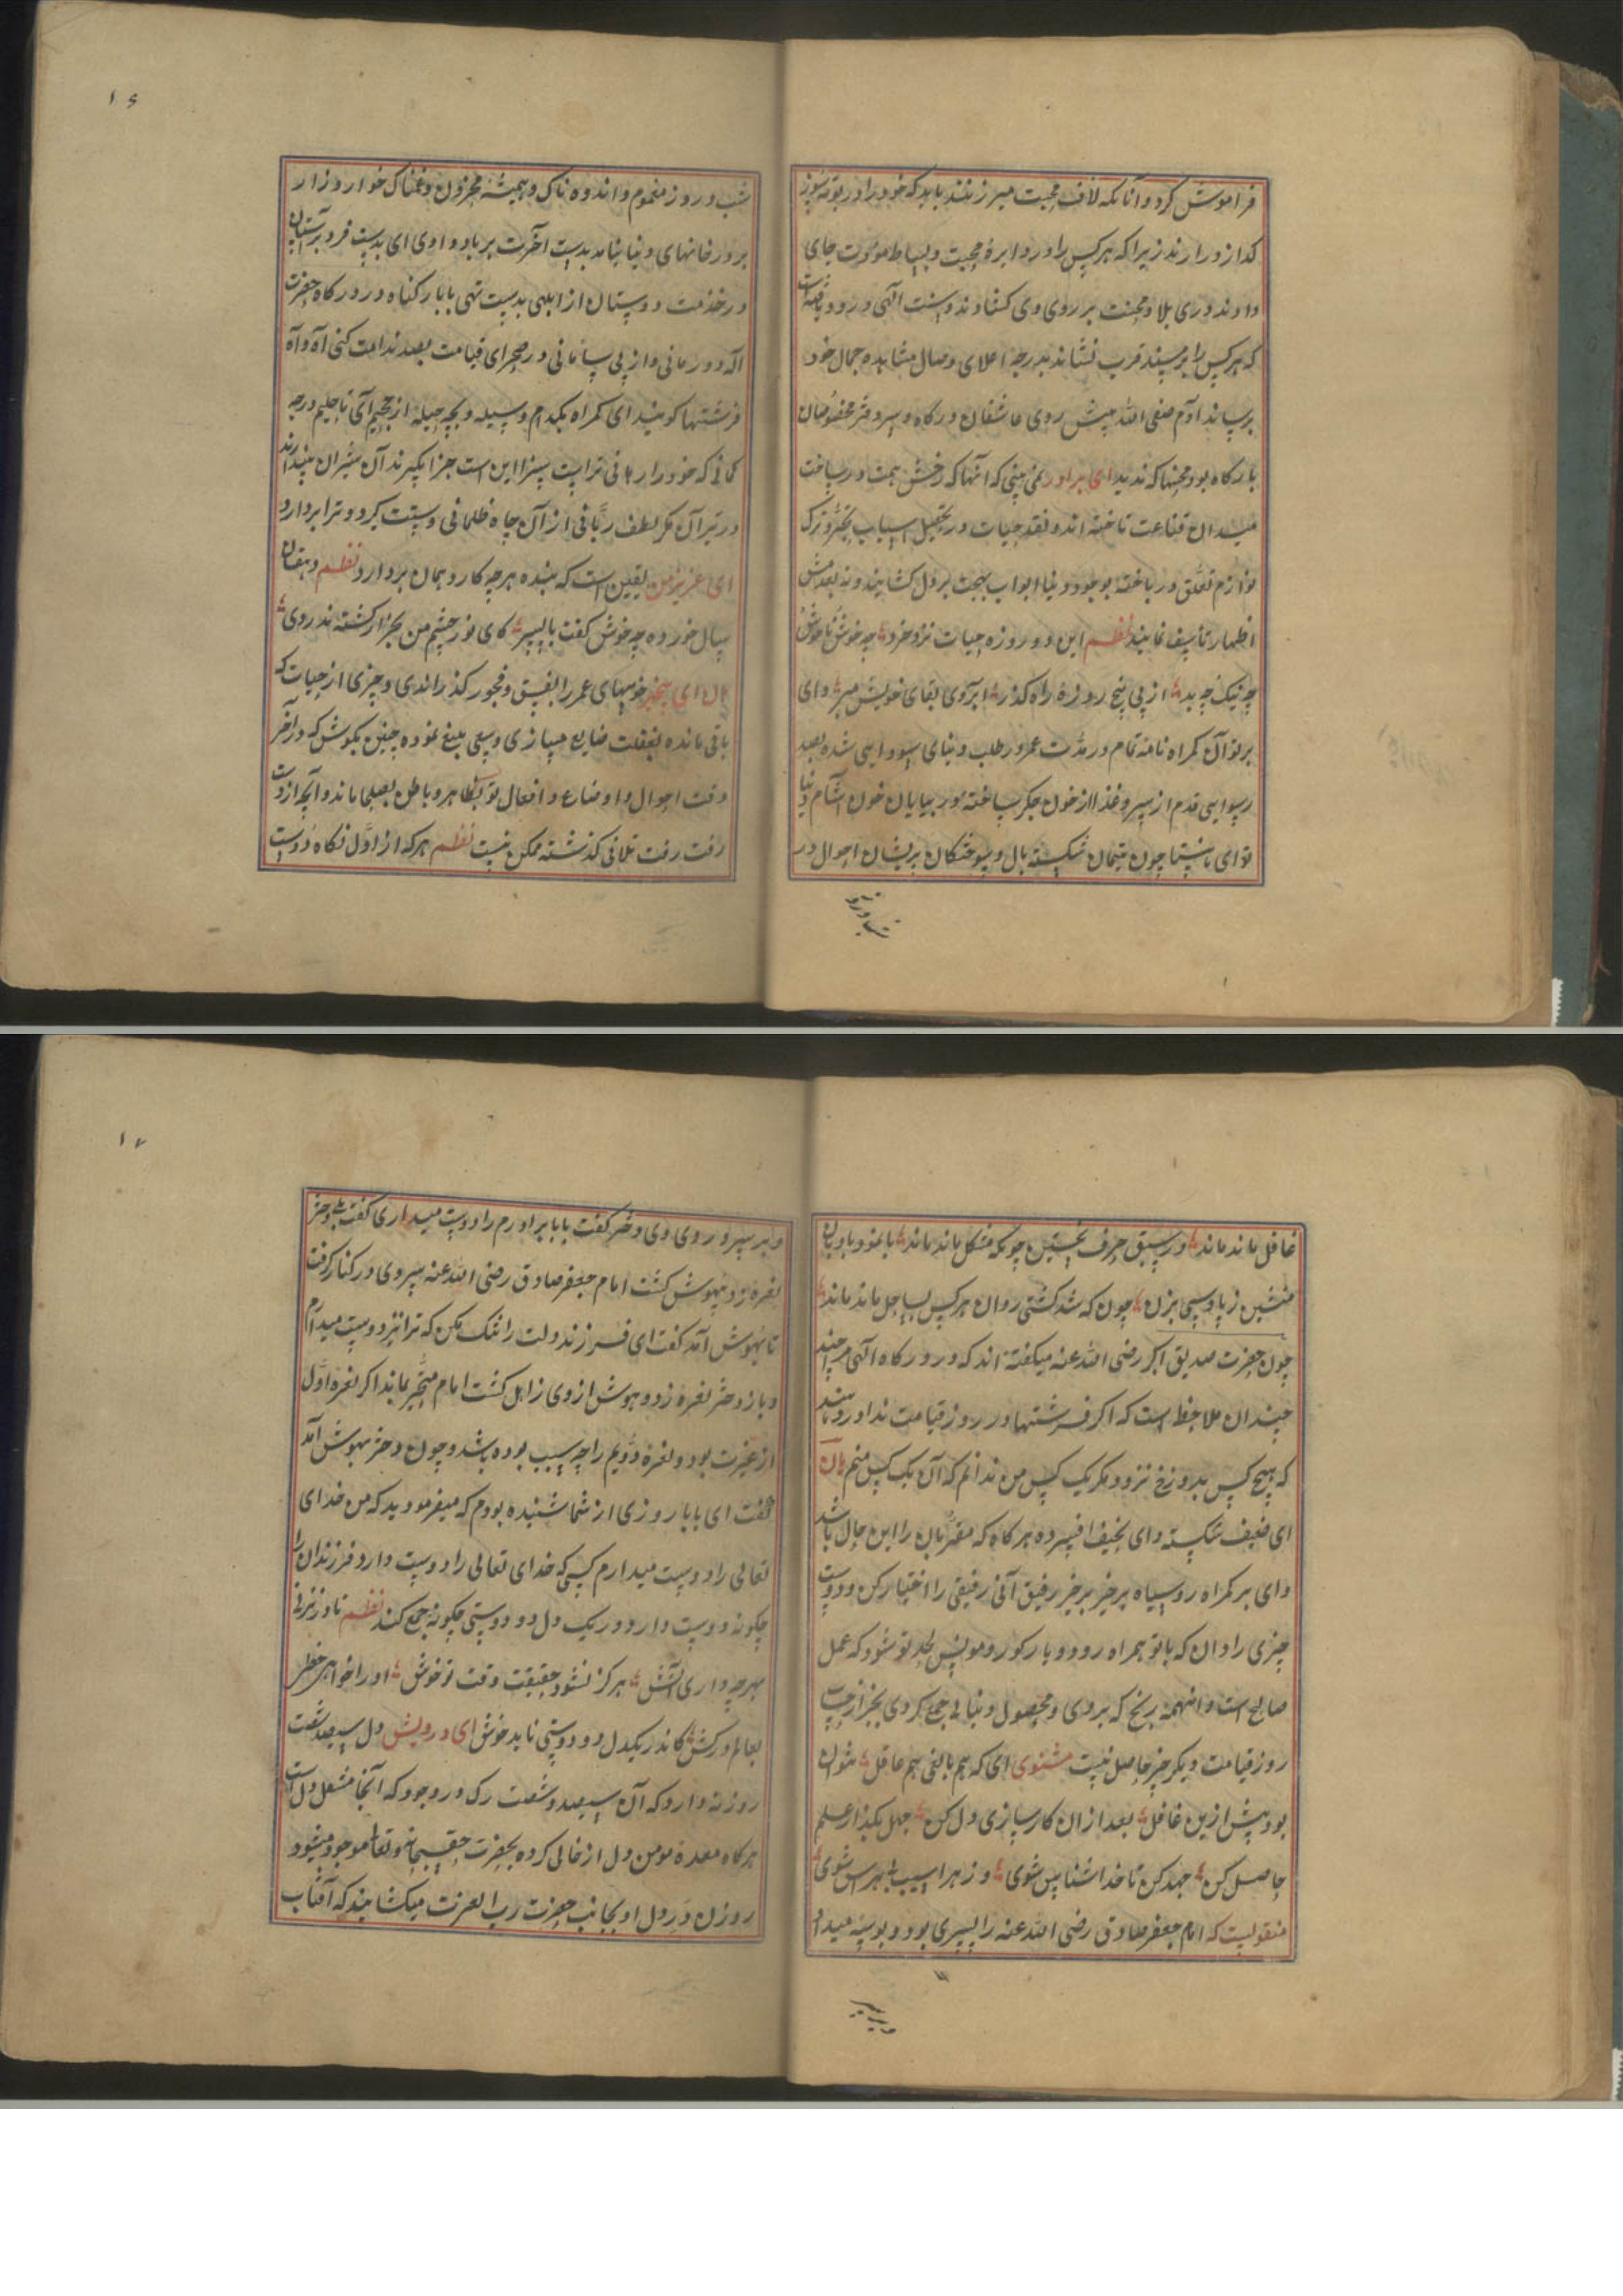 فراموش کرد و آنانکه لاف محبت میزنند باید که خود را در بوته سوز
کداز در ارند زیرا که هر کس را در دایره محبت و بساط مودت جای
دادند دری بلا و محنت بر روی وی کشادند و سنت الهی در ود یافته است
که هر کس را بر مسند قرب نشاند بدرجه اعلای وصال مشاهده جمال خود
برساند آدم صفی الله پیش روی عاشقان درگاه و سر دفتر مخصوصان
بارکاه بود محنتها که ندید ای برادر نمی بینی که آنها که رخش همت در ساحت
میدان قناعت تاخته اند و نقد حیات در تحصیل اسباب تجرد و ترک
لوازم تعلق در باخته بوجود دنیا ابواب بهجت بر دل کشایند و نه بعدمش
اظهار تأسف نمایند نظم این دو روزه حیات نزد خرد چه خوش ناخوش
چه نیک چه بد از پی پنج روزهٔ راه کذر آبروی بقای خویش مبر وای
بر تو آن کمراه نامه تمام در مدت عمر در طلب دنیای سودایی شده بصد
رسوایی قدم از سر و غذا از خون جکر ساخته در بیابان خون آشام دنیا
تو ای ناشتا چون یتیمان شکسته بال و سوختکان پریشان احوال در
شب و روز
۱۶
شب و روز مغموم و اندوه ناک و همیشه محزون و غمناک خوار و زار
بر در خانهای دنیا بنامد بدست آخرت بر باد دادی ای بدبست فرد بر آستان
در خدمت دوستان از ابلهی بدست تهی با بار کناه در درکاه حضرت
اله درمانی و از بی سامانی در صحرای قیامت بصد ندامت کنی آه و آه
فرشتها کویند ای کمراه بکدام وسیله و بچه حیله از جحیم آئی تا حلیم درجه
کمانی که خود را رهانی ترا بست سزا این است جزا بکیرند آن شیران بیندازند
در تیر آن مکر لطف ربانی از آن چاه ظلمانی دستت کیرد و ترا بردارد
ای عزیز من یقین است که بنده هر چه کارد همان بردارد نظم دهقان
سال خورده چه خوش کفت با پسر کای نور چشم من بجز از کشته ندروی
هان ای بیخبر خوبیهای عمر را بفسق و فجور کذراندی و چیزی از حیات که
باقی مانده بغفلت ضایع میسازی و سعی بلیغ نموده چنین بکوش که در آخر
وقت احوال و اوضاع و افعال تو بظاهر و باطن بصلحا ماند و آنچه از دست
رفت رفت تلافی کذشته ممکن نیست نظم هر که از اول نکاه دوست
غافل ماند ماند در سبق حرف نخستین چونکه مشکل ماند ماند با نمود با و بان
منشین ز پا دسی بزن چون که شد کشتی روان هر کس بساحل ماند ماند
چون حضرت صدیق اکبر رضی الله عنه میکفته اند که در درکاه الهی هر چند
چندان ملاحظ است که اکر فرشتها در روز قیامت ندا در دهند
که هیچ کس بدوزخ نرود مکر یک کس من ندانم که آن یک کس منم هان
ای ضعیف شکسته و ای نحیف افسرده هرکاه که مقربان را این حال باشد
وای بر کمراه رو سیاه برخیز برخیز رفیق آنی رفیقی را اختیار کن و دوست
چیزی را دان که با تو همراه رود و یار کور و مونس لحد تو شود که عمل
صالح است و اینهمه رنج که بردی و محصول دنیایی جمع کردی بجز از حساب
روز قیامت دیکر چیز حاصل نیست مثنوی ای که هم بالغی هم عاقل نتوان
بود پیش ازین غافل بعد از ان کار سازی دل کن جهل بکذار علم
حاصل کن جهد کن تا خدا شناس شوی وز هر اسیب بی هراس شوی
منقولست که امام جعفر صادق رضی الله عنه را پسری بود و بوسه میداد
و بر سر
۱۷
و بر سر و روی وی دختر کفت بابا برادرم را دوست میداری کفت بلی دختر
نعره زد بیهوش کشت امام جعفر صادق رضی الله عنه سر وی در کنار کرفت
تا بهوش آمد کفت ای فرزند دلت را تنک مکن که ترا نیز دوست میدارم
و باز دختر نعره زد و هوش از وی زایل کشت امام متحیر بماند اکر نعره اول
از غیرت بود و نعره دویم را چه سبب بوده باشد و چون دختر بهوش آمد
کفت ای بابا روزی از شما شنیده بودم که میفرمودید که من خدای
تعالی را دوست میدارم کسی که خدای تعالی را دوست دارد فرزندان را
چکونه دوست دارد و در یک دل دو دوستی چکونه جمع کند نظم تا در نزنی
بهر چه داری آتش هرکز نشود حقیقت وقت تو خوش او را خواهی خط
بعالم درکش کاندر یکدل دو دوستی ناید خوش ای درویش دل سیصد شصت
روزنه دارد که آن سیصد و شصت رک در وجود که آنجا مشعل دل است
هرکاه معدهٔ مومن دل از خالی کرده بحضرت حق سبحانه و تعالی موجود میشود
روزن در دل او بجانب حضرت رب العزت میکشایند که آفتاب